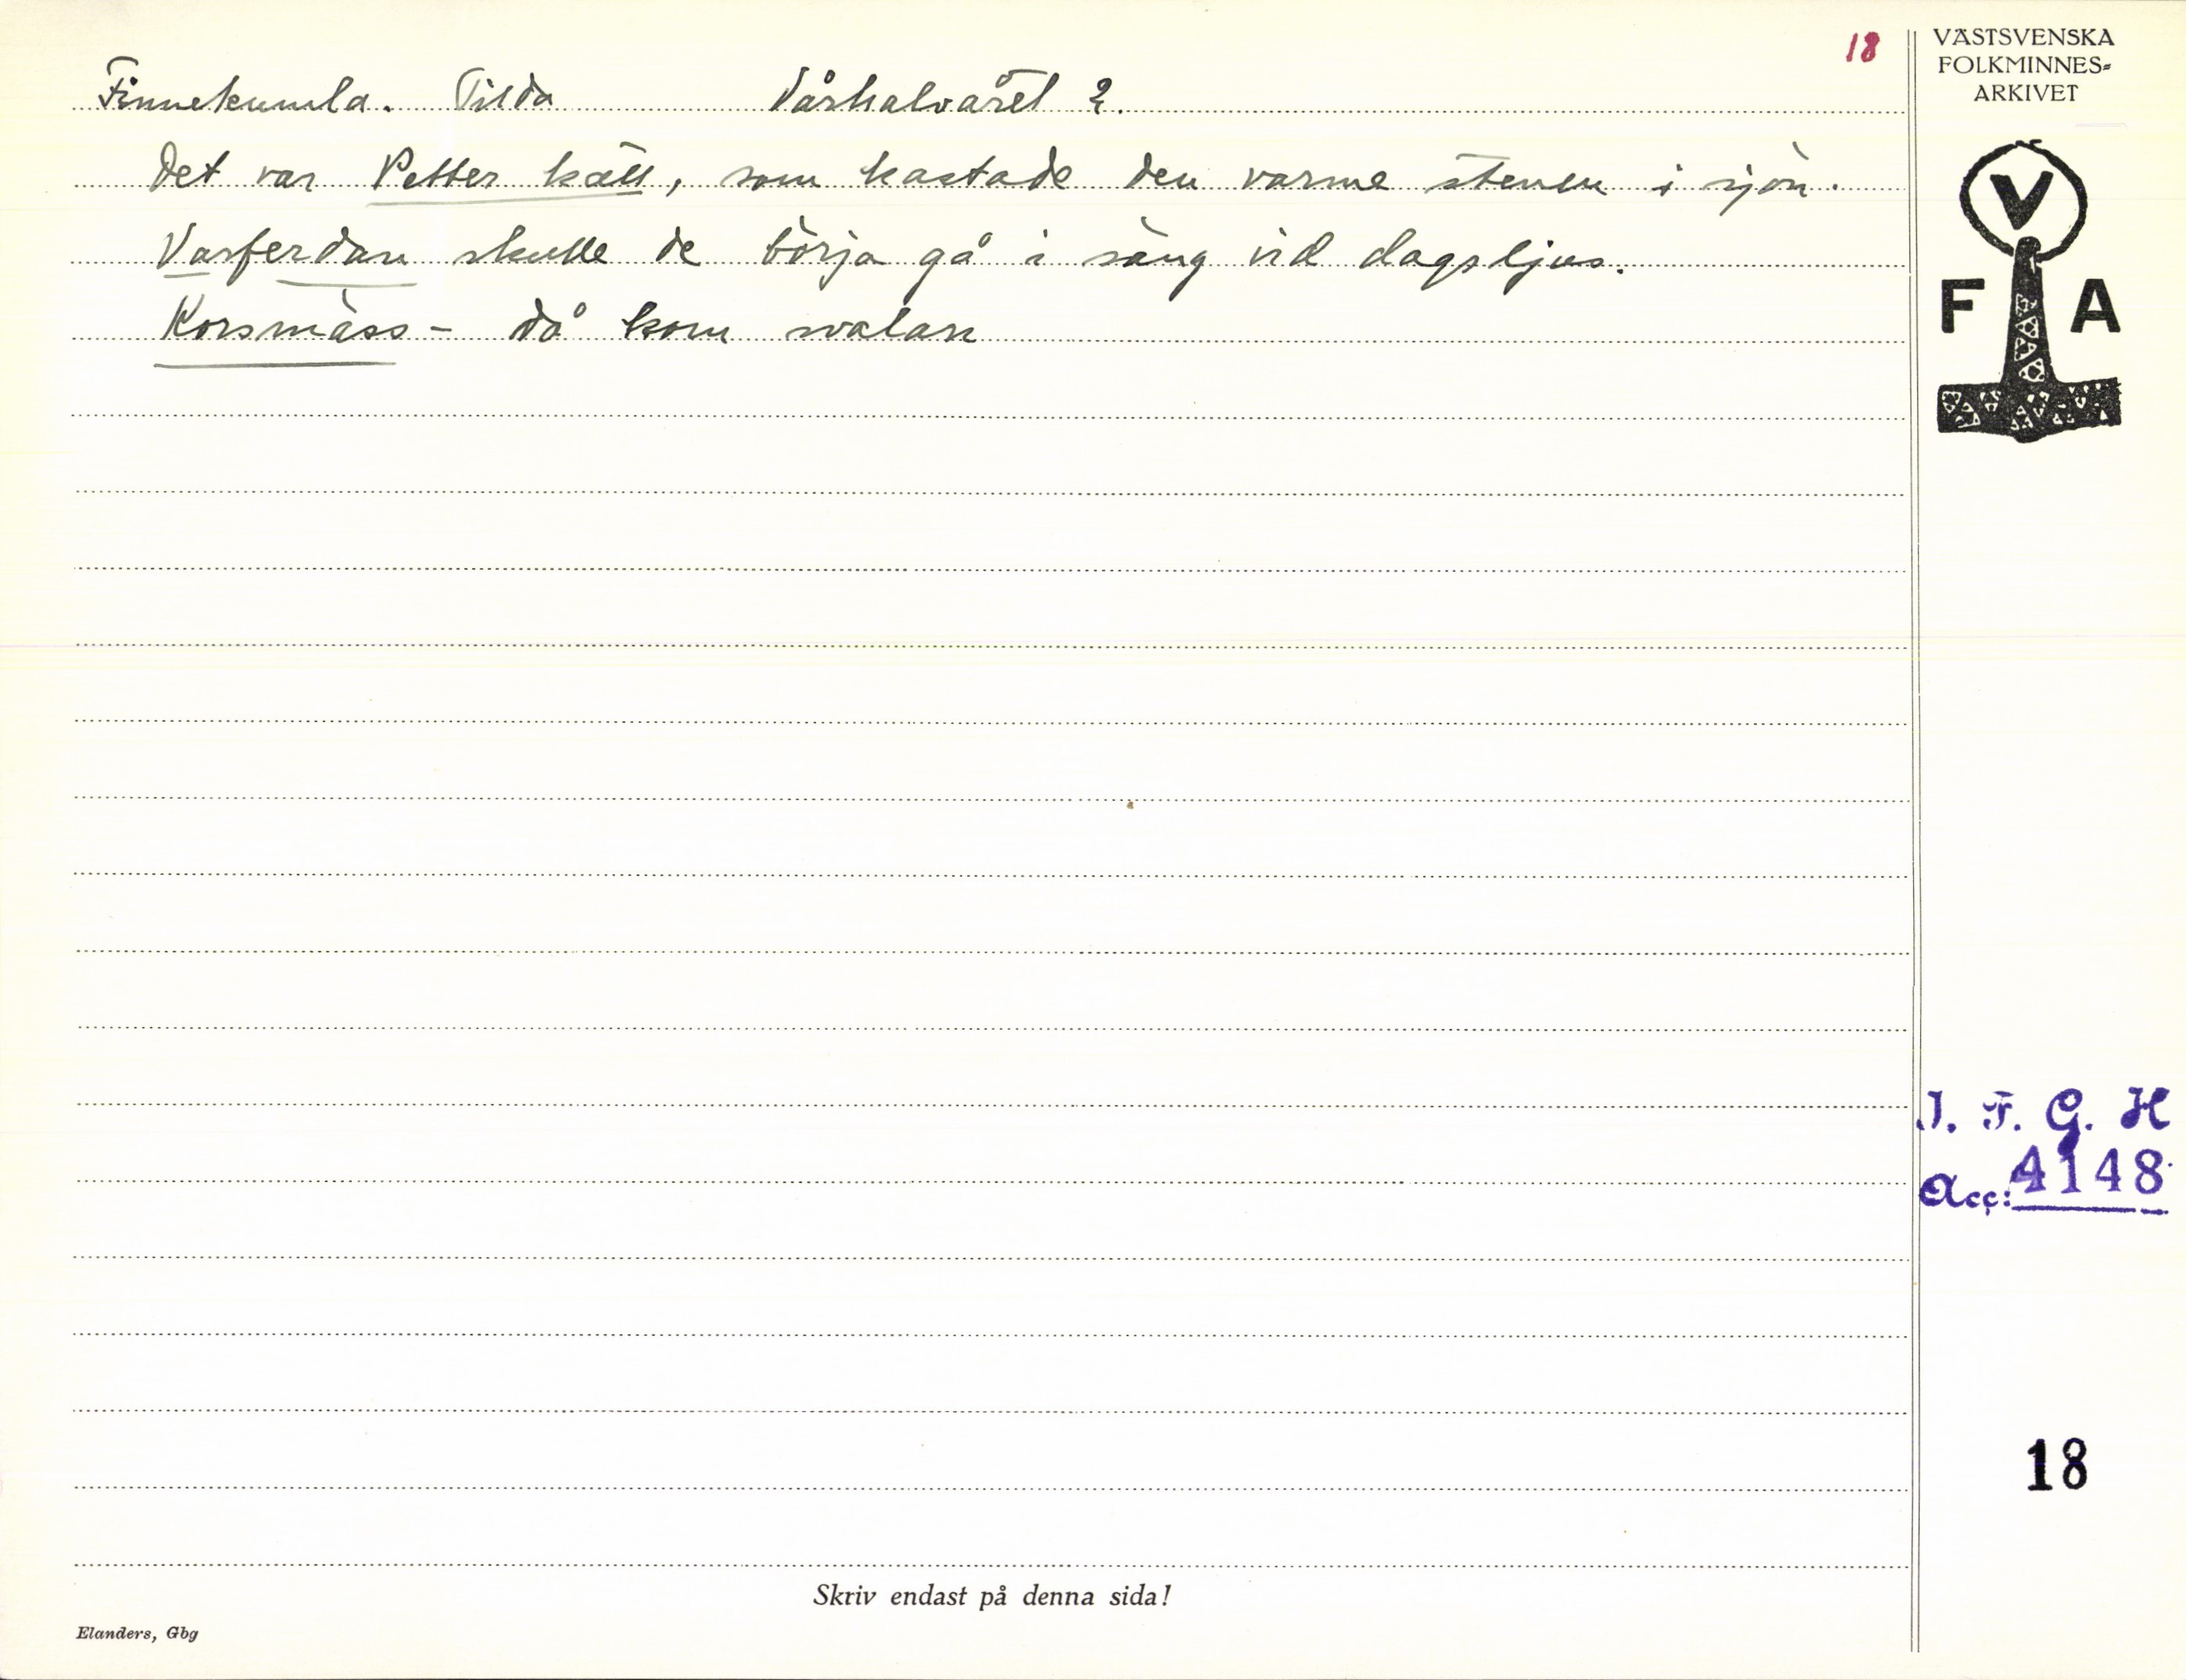 18
Finnekumla. Tilda Vårhalvåret 2.
Det var Petter käll, som kastade den varme stenen i sjön.
Varferdan skulle de börja gå i säng vid dagsljus.
Korsmäss - då kom svalan
VÄSTSVENSKA
FOLKMINNES-
ARKIVET
V
F A
I. F. G. H
Acc: 4148
18
Skriv endast på denna sida!
Elanders, Gbg